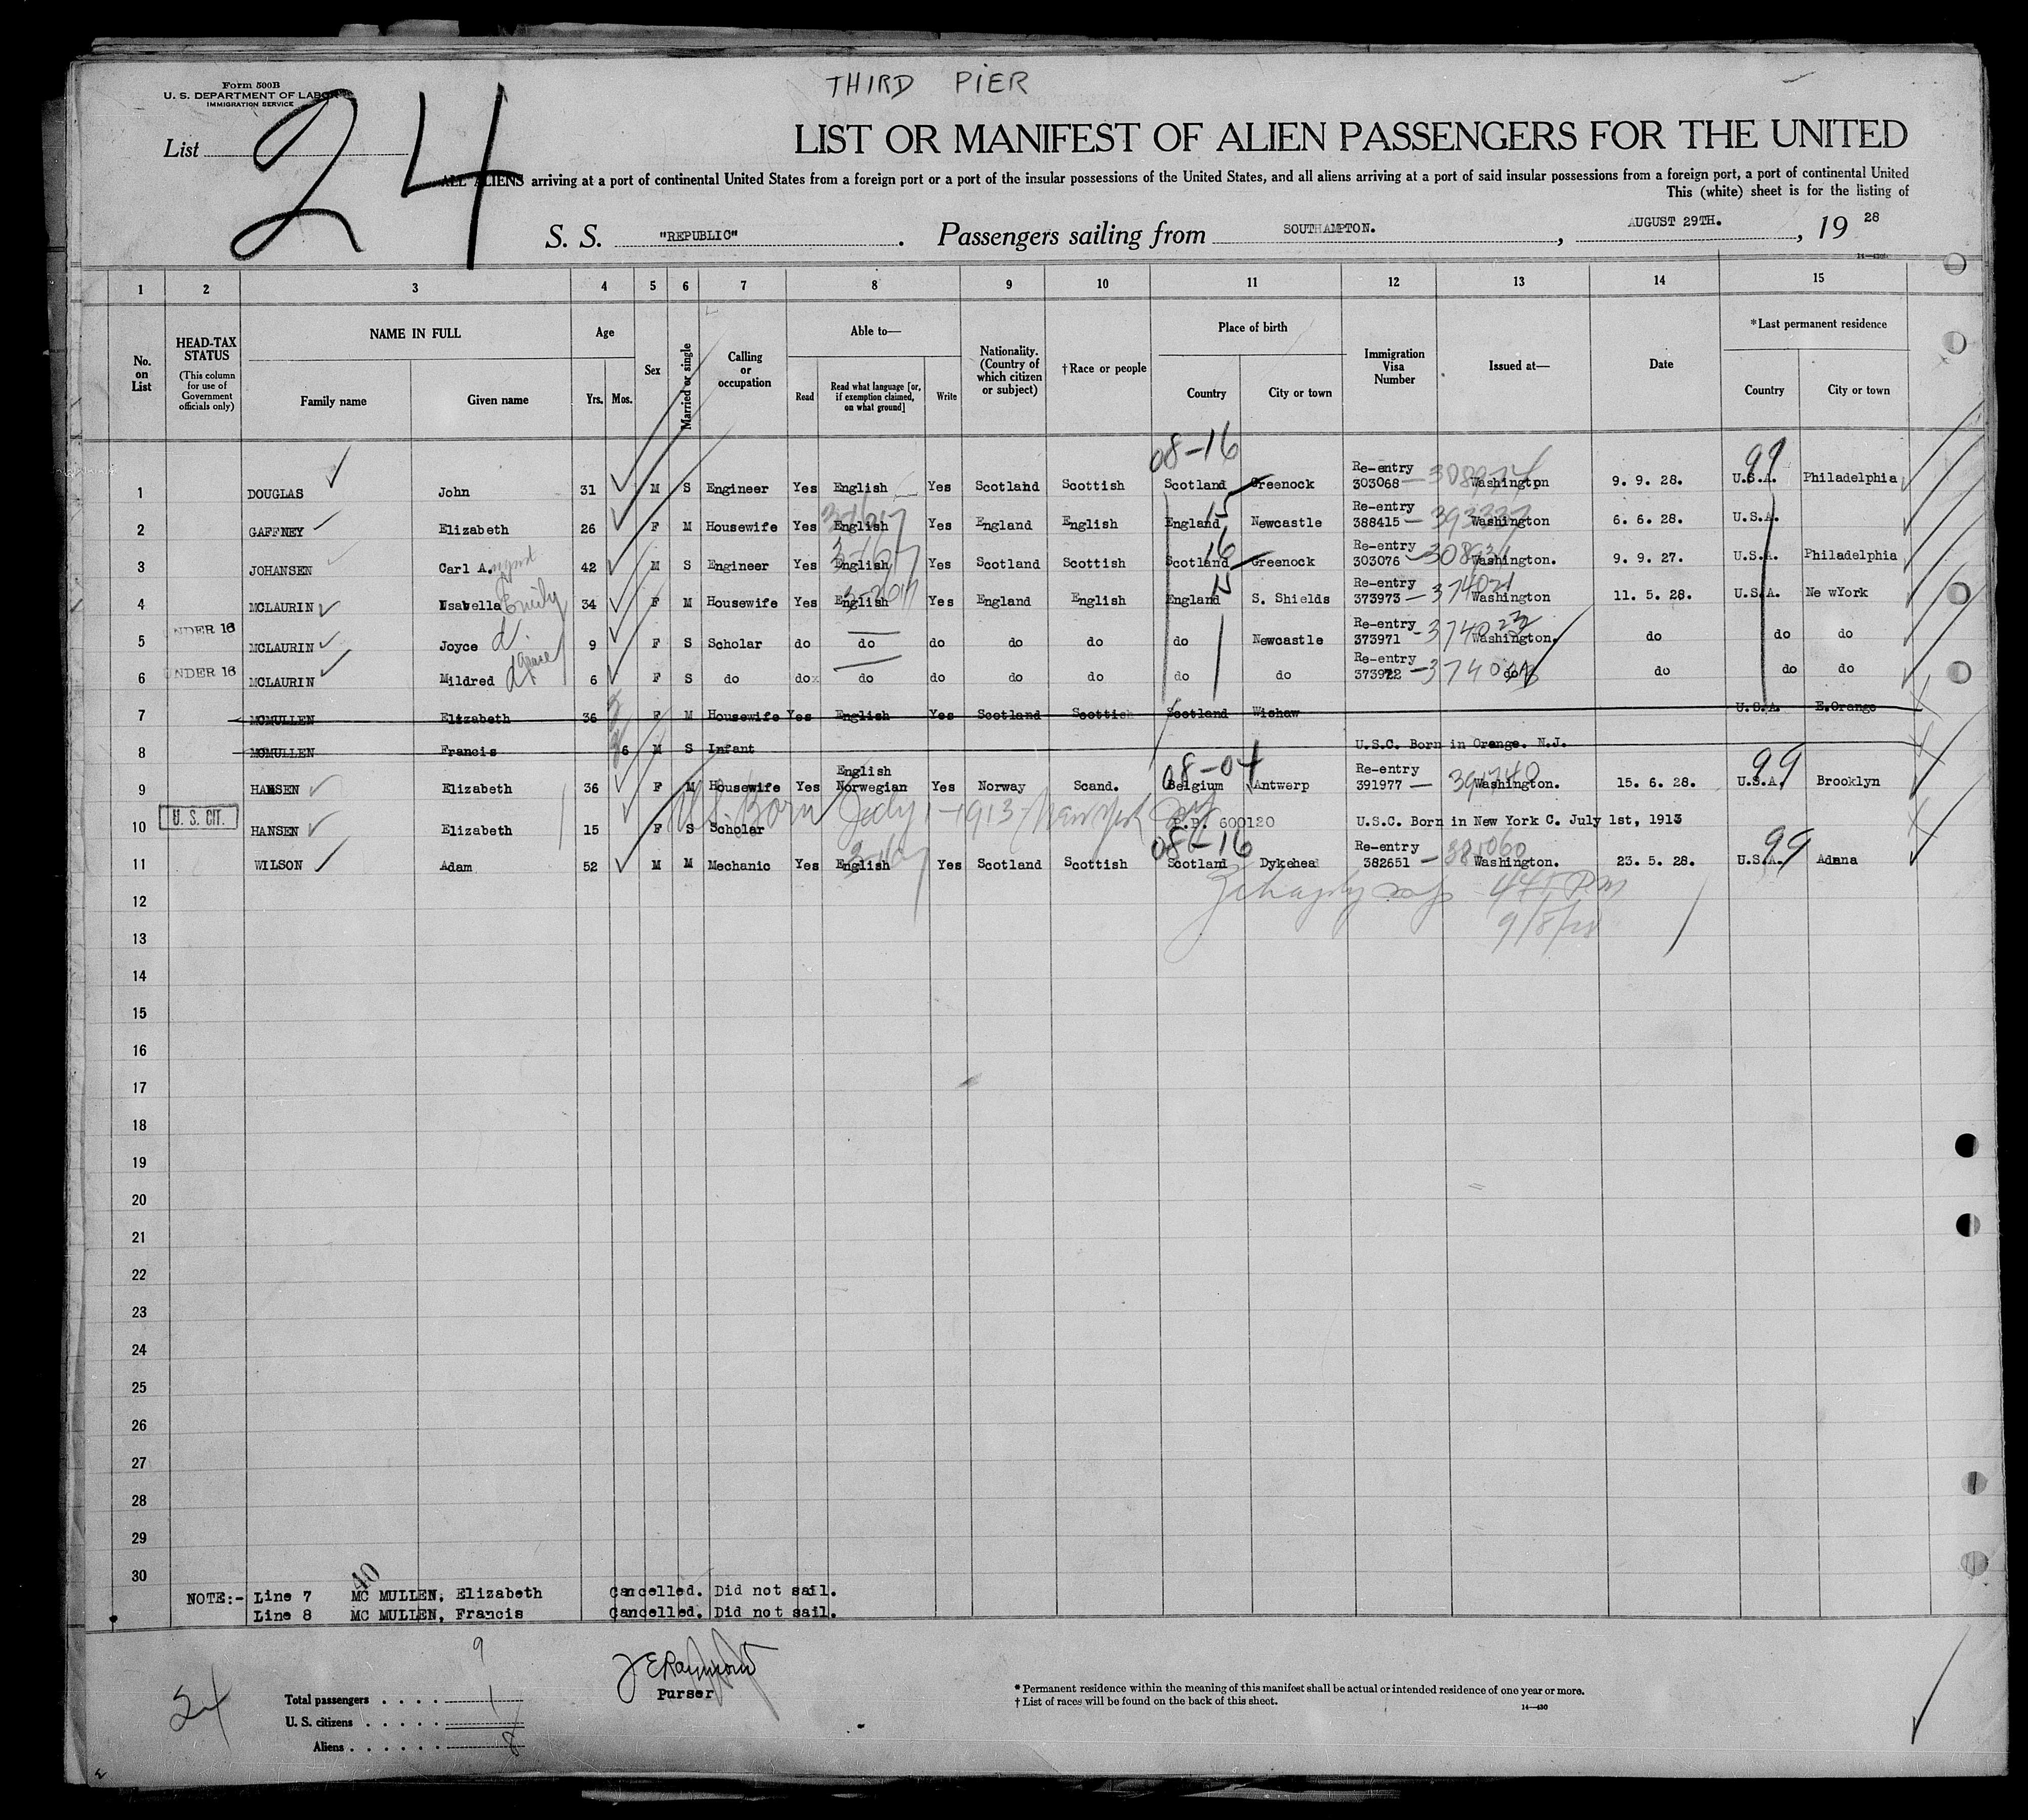 THIRD PIER
Form 500B
U. S. DEPARTMENT OF LABOR
IMMIGRATION SERVICE
List 24
LIST OR MANIFEST OF ALIEN PASSENGERS FOR THE UNITED
ALL ALIENS arriving at a port of continental United States from a foreign port or a port of the insular possessions of the United States, and all aliens arriving at a port of said insular possessions from a foreign port, a port of continental United
This (white) sheet is for the listing of
S. S. "REPUBLIC". Passengers sailing from SOUTHAMPTON. , AUGUST 29TH. , 19 28
14—430
1 2 3 4 5 6 7 8 9 10 11 12 13 14 15
No. on List
HEAD-TAX STATUS
(This column for use of Government officials only)
NAME IN FULL
Family name Given name
Age
Yrs. Mos.
Sex
Married or single
Calling or occupation
Able to—
Read Read what language [or, if exemption claimed, on what ground] Write
Nationality. (Country of which citizen or subject)
†Race or people
Place of birth
Country City or town
Immigration Visa Number
Issued at—
Date
*Last permanent residence
Country City or town
08-16 99
1 DOUGLAS John 31 M S Engineer Yes English Yes Scotland Scottish Scotland Greenock Re-entry 303068 — 308974 Washington 9. 9. 28. U.S.A. Philadelphia
2 GAFFNEY Elizabeth 26 F M Housewife Yes English Yes England English England 15 Newcastle Re-entry 388415 — 393337 Washington 6. 6. 28. U.S.A.
3 JOHANSEN Carl A. 42 M S Engineer Yes English Yes Scotland Scottish Scotland 16 Greenock Re-entry 303076 — Washington. 9. 9. 27. U.S.A. Philadelphia
4 MCLAURIN Isabella Emily 34 F M Housewife Yes English Yes England English England 15 S. Shields Re-entry 373973 — 374021 Washington 11. 5. 28. U.S.A. Ne wYork
5 UNDER 16 MCLAURIN Joyce d. 9 F S Scholar do do do do do do Newcastle Re-entry 373971 - 374022 Washington. do do do
6 UNDER 16 MCLAURIN Mildred Grace 6 F S do do do do do do do do Re-entry 373972 — do do do do
7 MCMULLEN Elizabeth 36 F M Housewife Yes English Yes Scotland Scottish Scotland Wishaw U.S.A. E.Orange
8 MCMULLEN Francis 6 M S Infant U.S.C. Born in Orange. N.J.
08-04 99
9 HANSEN Elizabeth 36 F M Housewife Yes English Norwegian Yes Norway Scand. Belgium Antwerp Re-entry 391977 — Washington. 15. 6. 28. U.S.A. Brooklyn
U.S. Born July 1-1913 New York
10 U. S. CIT. HANSEN Elizabeth 15 F S Scholar P.P. 600120 U.S.C. Born in New York C. July 1st, 1913
08-16 99
11 WILSON Adam 52 M M Mechanic Yes English Yes Scotland Scottish Scotland Dykehead Re-entry 382651 — Washington. 23. 5. 28. U.S.A. Adana
12
13
14
15
16
17
18
19
20
21
22
23
24
25
26
27
28
29
30
40
NOTE:- Line 7 MC MULLEN, Elizabeth Cancelled. Did not sail.
Line 8 MC MULLEN, Francis Cancelled. Did not sail.
9
24
Total passengers . . . . 1
U. S. citizens . . . . .
Aliens . . . . . . 8
J E Raymond
Purser
* Permanent residence within the meaning of this manifest shall be actual or intended residence of one year or more.
† List of races will be found on the back of this sheet.
14—430